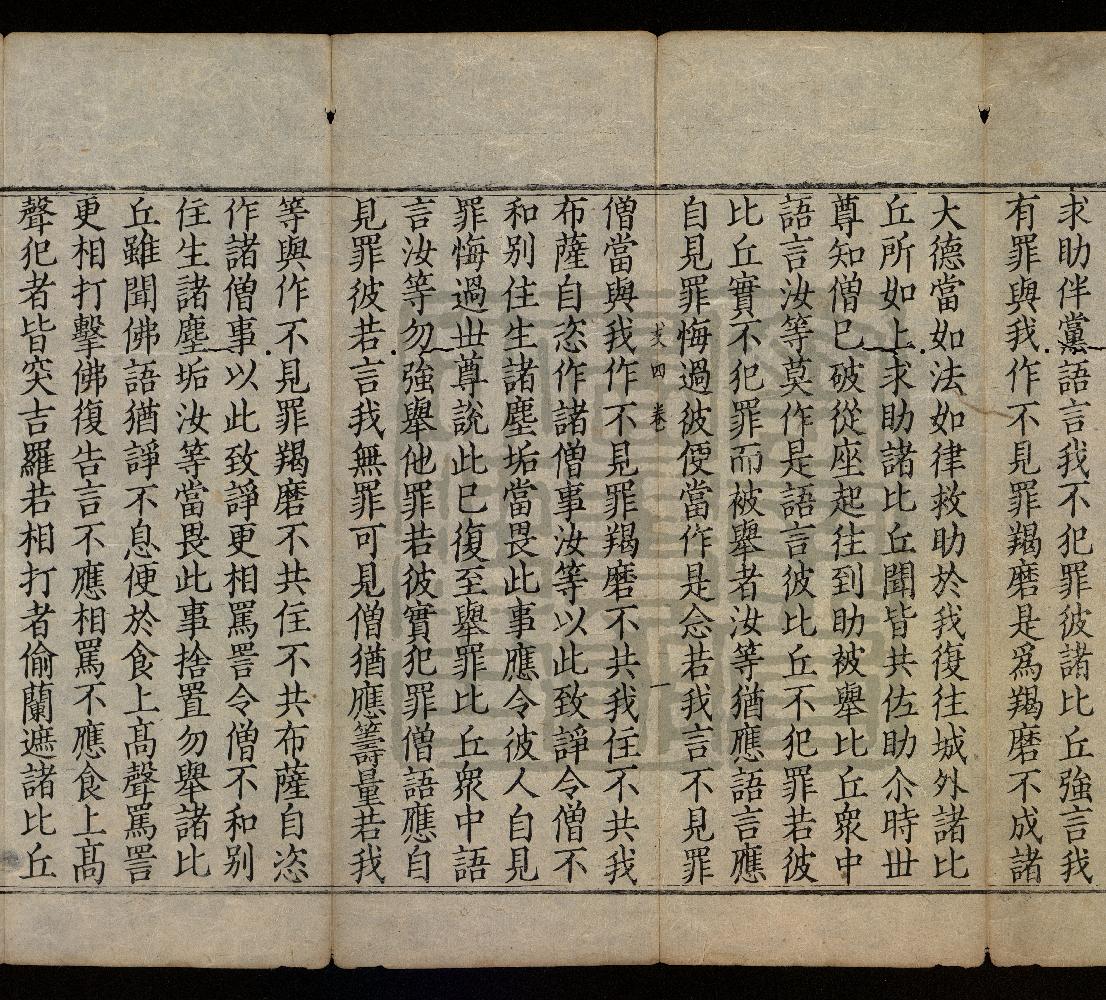 求助伴黨語言我不犯罪彼諸比丘強言我
有罪與我作不見罪羯磨是爲羯磨不成諸
大德當如法如律救助於我復往城外諸比
丘所如上求助諸比丘聞皆共佐助尒時丗
尊知僧巳破從座起往到助被舉比丘衆中
語言汝等莫作是語言彼比丘不犯罪若彼
比丘實不犯罪而被舉者汝等猶應語言應
自見罪悔過彼便當作是念若我言不見罪
四 卷 一
僧當與我作不見罪羯磨不共我住不共我
布薩自恣作諸僧事汝等以此致諍令僧不
和别住生諸塵垢當畏此事應令彼人自見
罪悔過丗尊説此巳復至舉罪比丘衆中語
言汝等勿強舉他罪若彼實犯罪僧語應自
見罪彼若言我無罪可見僧猶應籌量若我
等與作不見罪羯磨不共住不共布薩自恣
作諸僧事以此致諍更相罵詈令僧不和别
住生諸塵垢汝等當畏此事捨置勿舉諸比
丘雖聞佛語猶諍不息便於食上髙聲罵詈
更相打擊佛復告言不應相罵不應食上髙
聲犯者皆突吉羅若相打者偷蘭遮諸比丘